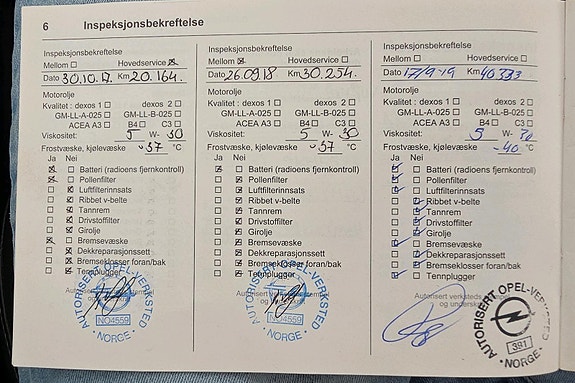 6 Inspeksjonsbekreftelse
Inspeksjonsbekreftelse
Mellom ☐ Hovedservice ☒
Dato 30.10.17. Km 20.164.
Motorolje
Kvalitet : dexos 1 ☐ dexos 2 ☐
GM-LL-A-025 ☐ GM-LL-B-025 ☐
ACEA A3 ☐ B4 ☐ C3 ☐
Viskositet: 5 W- 30
Frostvæske, kjølevæske -37 °C
Ja Nei
☒ ☐ Batteri (radioens fjernkontroll)
☒ ☐ Pollenfilter
☐ ☒ Luftfilterinnsats
☐ ☒ Ribbet v-belte
☐ ☒ Tannrem
☐ ☒ Drivstoffilter
☐ ☒ Girolje
☒ ☐ Bremsevæske
☐ ☒ Dekkreparasjonssett
☐ ☒ Bremseklosser foran/bak
☐ ☒ Tennplugger
AUTORISERT OPEL-VERKSTED
NO4559
NORGE
Inspeksjonsbekreftelse
Mellom ☒ Hovedservice ☐
Dato 26.09.18 Km 30.254.
Motorolje
Kvalitet : dexos 1 ☐ dexos 2 ☐
GM-LL-A-025 ☐ GM-LL-B-025 ☐
ACEA A3 ☐ B4 ☐ C3 ☐
Viskositet: 5 W- 30
Frostvæske, kjølevæske -37 °C
Ja Nei
☒ ☐ Batteri (radioens fjernkontroll)
☐ ☒ Pollenfilter
☐ ☒ Luftfilterinnsats
☐ ☒ Ribbet v-belte
☐ ☒ Tannrem
☐ ☒ Drivstoffilter
☐ ☒ Girolje
☐ ☒ Bremsevæske
☐ ☒ Dekkreparasjonssett
☐ ☒ Bremseklosser foran/bak
☐ ☒ Tennplugger
AUTORISERT OPEL-VERKSTED
NO4559
NORGE
Inspeksjonsbekreftelse
Mellom ☐ Hovedservice ☐
Dato 17/9-19 Km 40333
Motorolje
Kvalitet : dexos 1 ☐ dexos 2 ☐
GM-LL-A-025 ☐ GM-LL-B-025 ☐
ACEA A3 ☐ B4 ☐ C3 ☐
Viskositet: 5 W-
Frostvæske, kjølevæske -40 °C
Ja Nei
☑ ☐ Batteri (radioens fjernkontroll)
☑ ☐ Pollenfilter
☑ ☐ Luftfilterinnsats
☐ ☑ Ribbet v-belte
☐ ☑ Tannrem
☐ ☑ Drivstoffilter
☐ ☑ Girolje
☑ ☐ Bremsevæske
☐ ☑ Dekkreparasjonssett
☐ ☑ Bremseklosser foran/bak
☑ ☐ Tennplugger
Autorisert verksteds
og underskrift
AUTORISERT OPEL-VERKSTED
391
NORGE